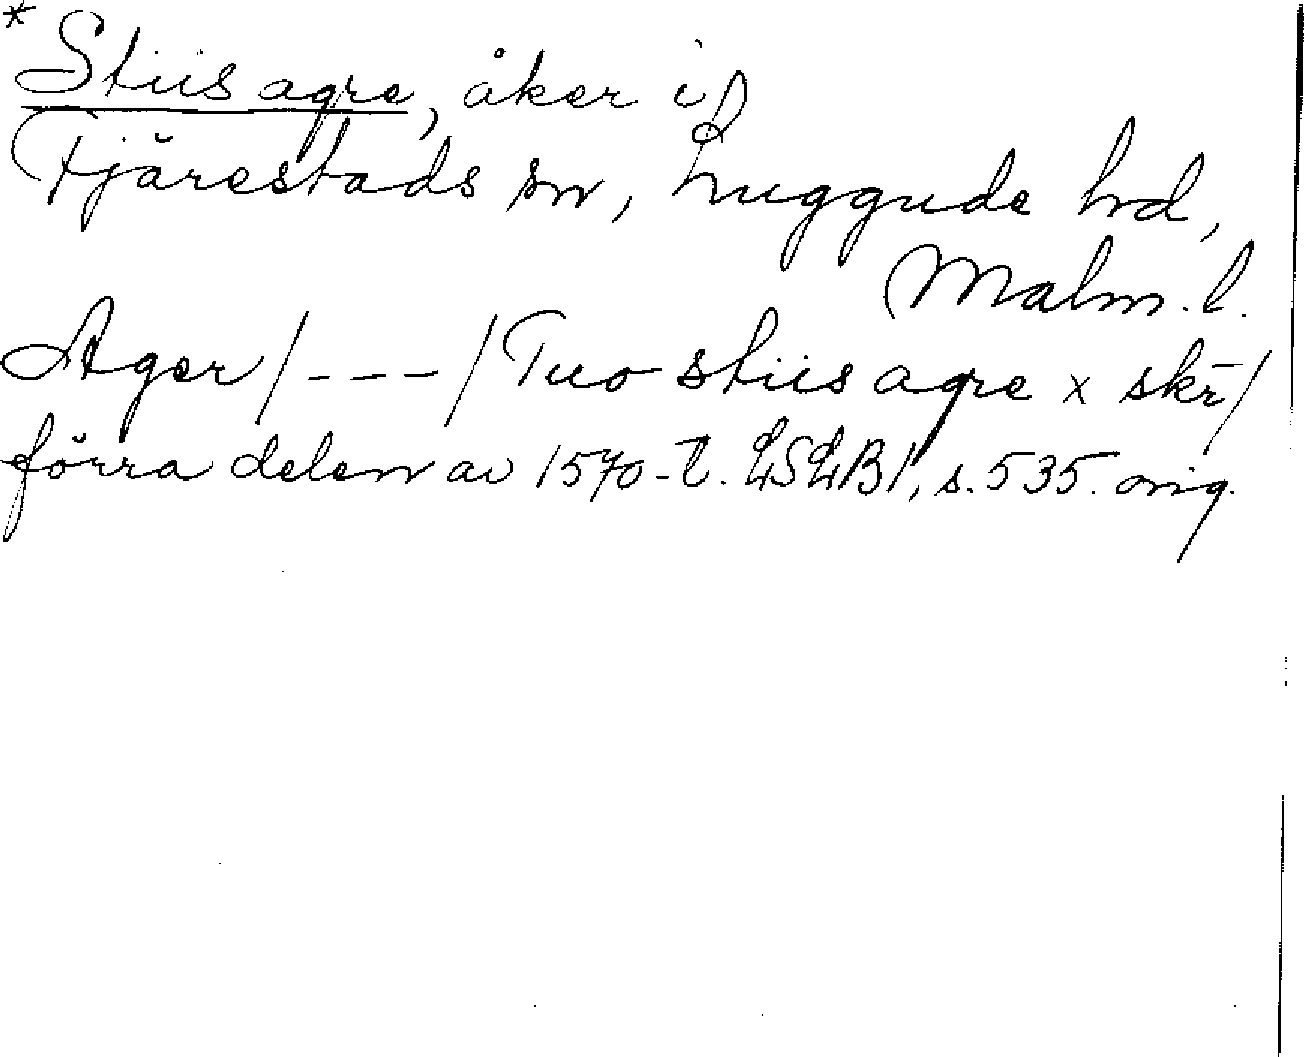 * Stiis agre, åker i
Fjärestads sn, Luggude hd,
Malm. l.
Ager /---/ Tuo stiis agre x skr/
förra delen av 1570-t. LSLB 1, s. 535. orig.